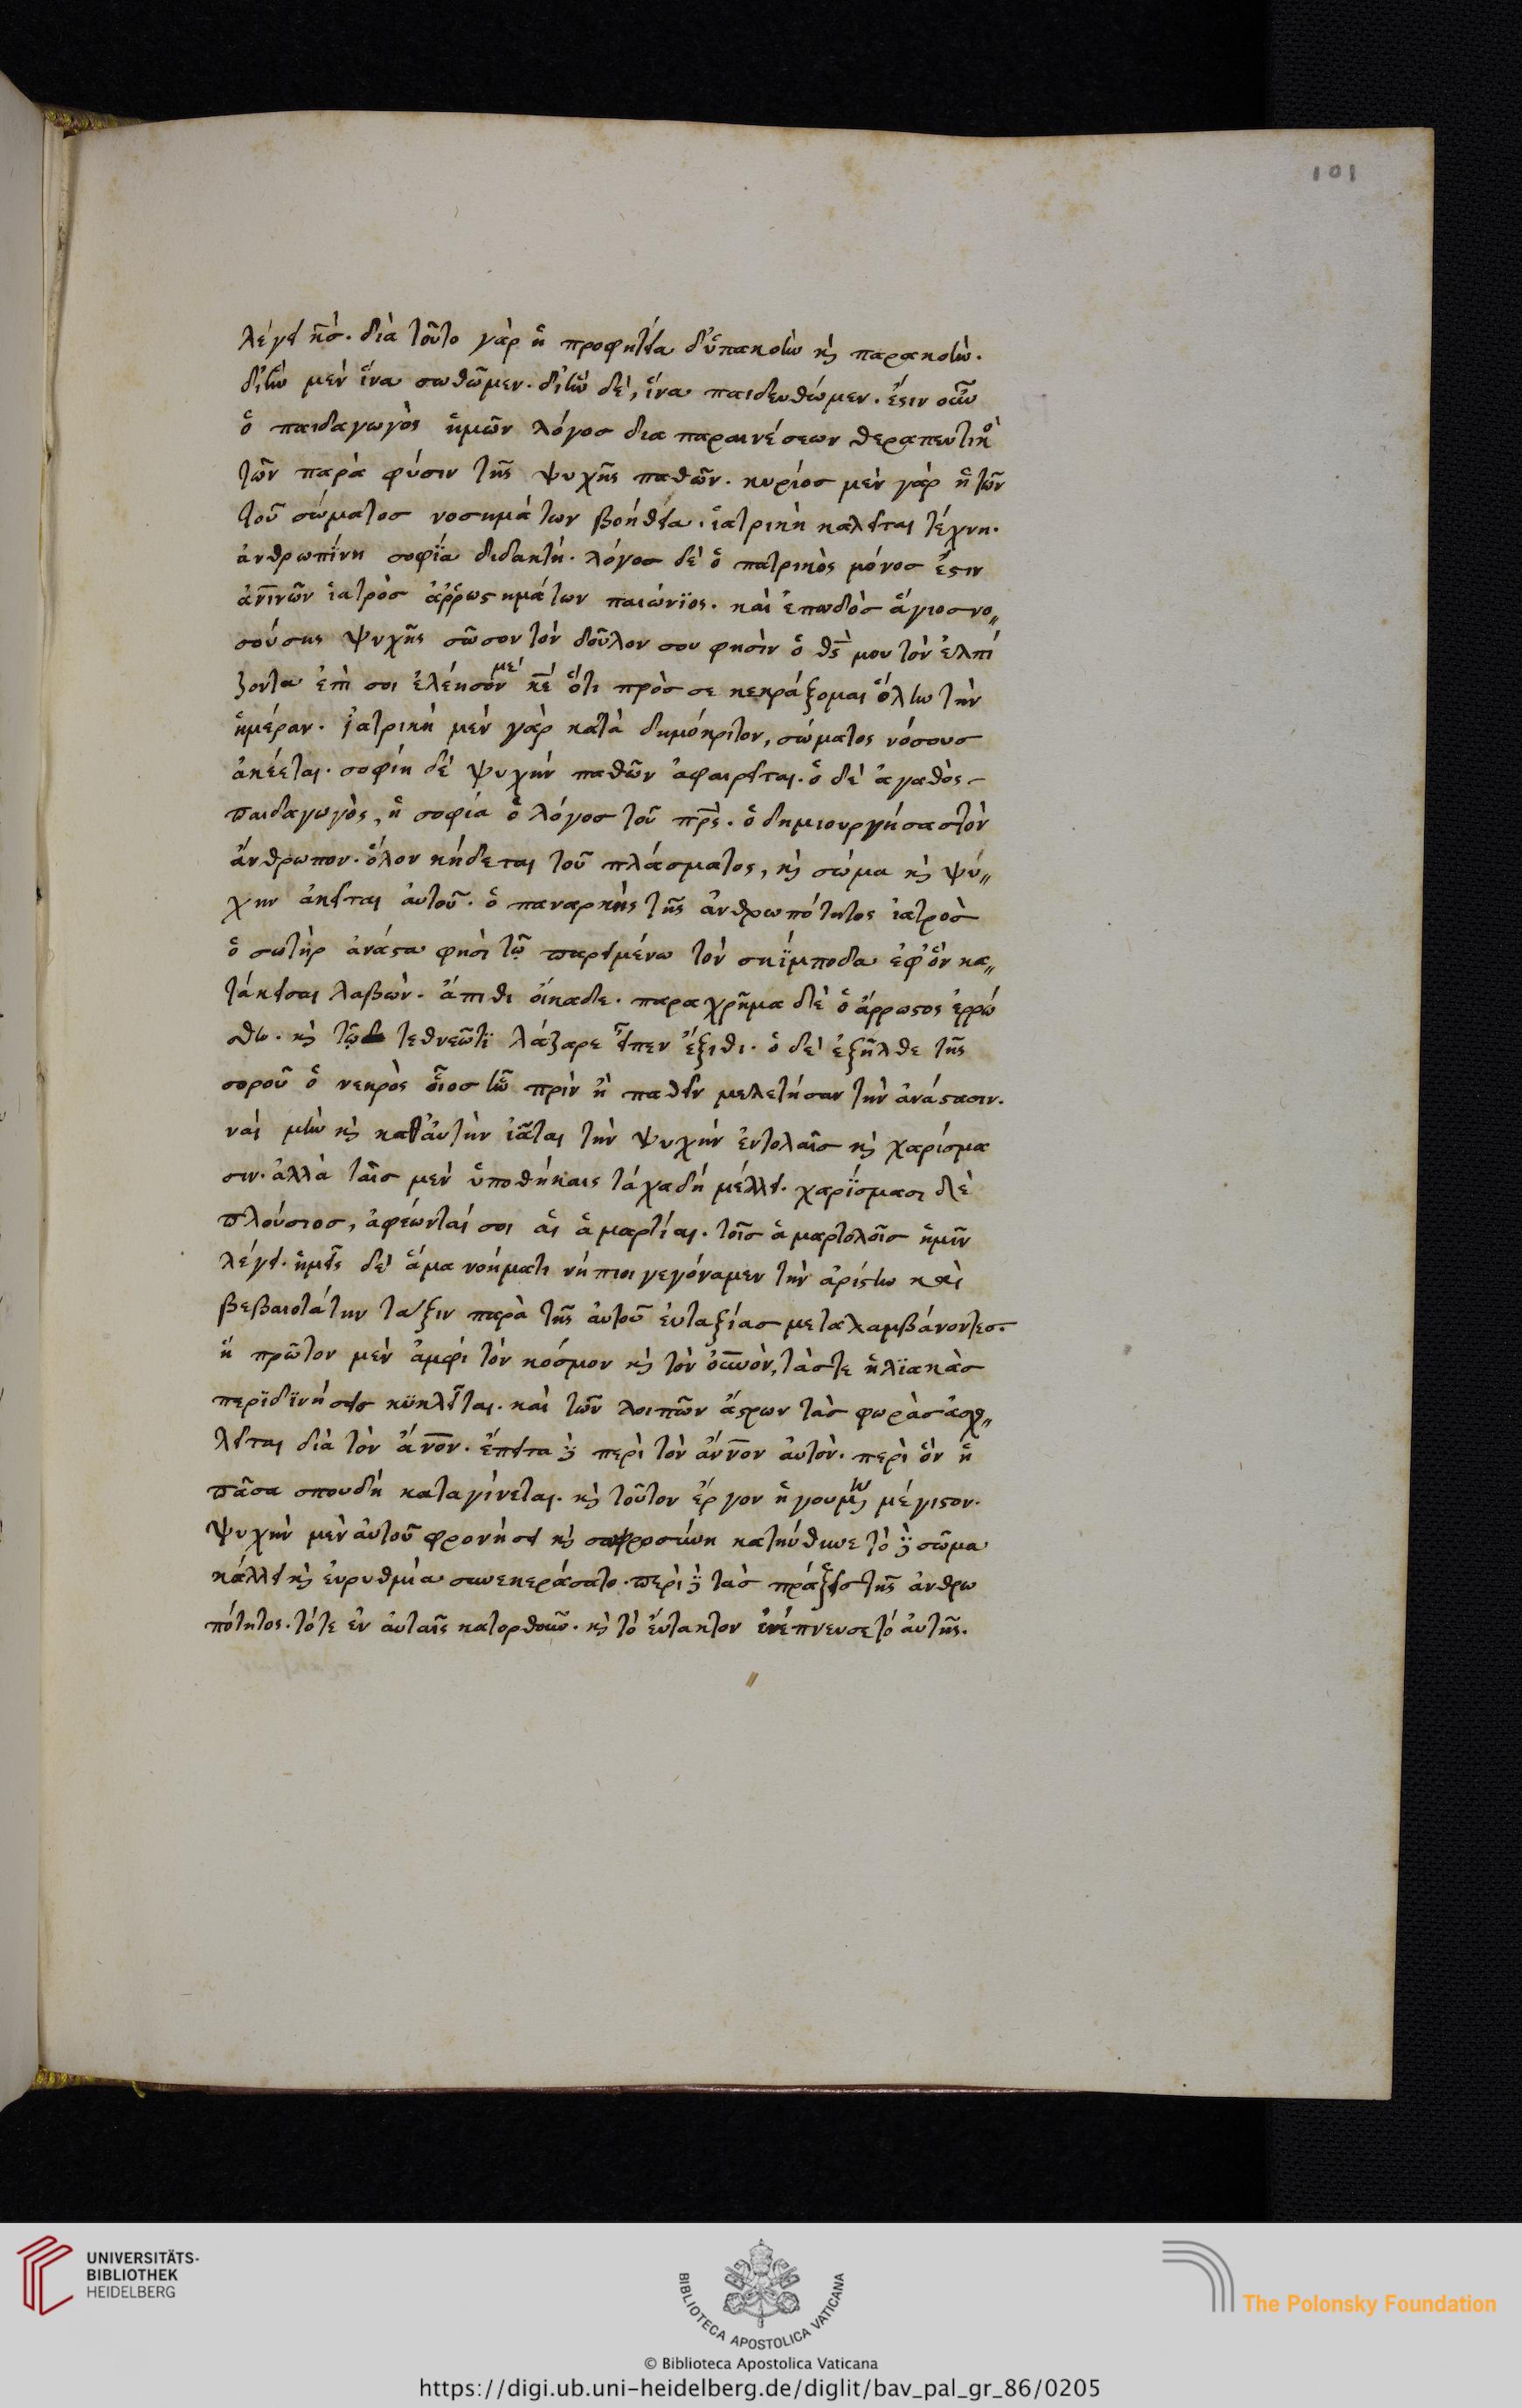 101
λέγει κ̅ς̅. διὰ τοῦτο γὰρ ἡ προφητεία δι' ὑπακοὴν κὶ παρακοὴν.
δι' ἣν μὲν ἵνα σωθῶμεν. δι' ἣν δὲ, ἵνα παιδευθώμεν. ἔστιν οὖν
ὁ παιδαγωγὸς ἡμῶν λόγος δια παραινέσεων θεραπευτικὸ
τῶν παρὰ φύσιν τῆς ψυχῆς παθῶν. κυρίος μὲν γὰρ ἡ τῶν
τοῦ σώματος νοσημάτων βοήθεια. ἰατρικὴ καλεῖται τέχνη.
ἀνθρωπίνη σοφΐα διδακτή. λόγος δὲ ὁ πατρικὸς μόνος ἐστιν
ἀν̅ι̅νῶν ἰατρὸς ἀῤῥωστημάτων παιώνϊος. καὶ ἐπωδὸς ἅγιος νο〃
σούσης ψυχῆς σῶσον τὸν δοῦλον σου φησὶν ὁ θ̅ς̅ μου τὸν ἐλπί
ζοντα ἐπὶ σοι ἐλέησόν με κ̅ε̅ ὅτι πρὸς σε κεκράξομαι ὅλην τὴν
ἡμέραν. ἰατρικὴ μὲν γὰρ κατὰ δημόκριτον, σώματος νόσους
ἀκέεται. σοφίη δὲ ψυχὴν παθῶν ἀφαιρεῖται. ὁ δὲ ἀγαθὸς
παιδαγωγὸς, ἡ σοφία ὁ λόγος τοῦ π̅ρ̅ς̅. ὁ δημιουργήσας τὸν
ἄνθρωπον. ὅλον κήδεται τοῦ πλάσματος, κὶ σώμα κὶ ψύ〃
χην ἀκεῖται ἀυτοῦ. ὁ παναρκὴς τῆς ἀνθρωπότητος ἰατρὸς
ὁ σωτὴρ ἀνάστα φησὶ τῷ παρειμένω τὸν σκΐμποδα ἐφ' ὃν κα〃
τάκεισαι λαβὼν. ἄπιθι ὄικαδε. παραχρῆμα δὲ ὁ ἄρρωστος ἐρρώ
σθη. κὶ τῷ τεθνεῶτϊ λάζαρε εἶπεν ἔξιθι. ὁ δὲ ἐξῆλθε τῆς
σοροῦ ὁ νεκρὸς οἷος ἦν πρὶν ἢ παθεῖν μελετήσαν τὴν ἀνάστασιν.
ναὶ μὴν κὶ καθ' ἀυτὴν ἰᾶται τὴν ψυχὴν ἐντολαῖς κὶ χαρίσμα
σιν. ἀλλὰ ταῖς μὲν ὑποθήκαις τάχα δὴ μέλλει. χαρΐσμασι δὲ
πλούσιος, ἀφέωνταί σοι ἁι ἁμαρτίαι. τοῖς ἁμαρτολοῖς ἡμῖν
λέγει. ἡμεῖς δὲ ἅμα νοήματι νήπιοι γεγόναμεν τὴν ἀρίστην καὶ
βεβαιοτάτην τάξιν παρὰ τῆς ἀυτοῦ ἐυταξίας μεταλαμβάνοντες.
ἣ πρῶτον μὲν ἀμφὶ τὸν κόσμον κὶ τὸν ὀυ̅νὸν, τάς τε ἡλϊακὰς
περϊδϊνήσεις κϋκλεῖται. καὶ τῶν λοιπῶν ἄστρων τὰς φωρὰς ἀσχο〃
λεῖται διὰ τὸν ἄν̅ο̅ν. ἔπειτα δὲ περὶ τὸν ἄν̅ν̅ον ἀυτὸν. περὶ ὃν ἡ
πᾶσα σπουδὴ καταγίνεται. κὶ τοῦτον ἔργον ἡγουμ̅ς̅ μέγιστον.
ψυχὴν μὲν ἀυτοῦ φρονήσει κὶ σωφροσύνη κατηύθυνε τὸ δὲ σῶμα
κάλλει κὶ ἐυρυθμία συνεκεράσατο. περὶ δὲ τὰς πράξεις τῆς ἀνθρω
πότητος. τό τε ἐν ἀυταῖς κατορθοῦν. κὶ τὸ ἔυτακτον ἐνέπνευσε τὸ ἀυτῆς.
UNIVERSITÄTS-
BIBLIOTHEK
HEIDELBERG
BIBLIOTECA APOSTOLICA VATICANA
The Polonsky Foundation
© Biblioteca Apostolica Vaticana
https://digi.ub.uni-heidelberg.de/diglit/bav_pal_gr_86/0205